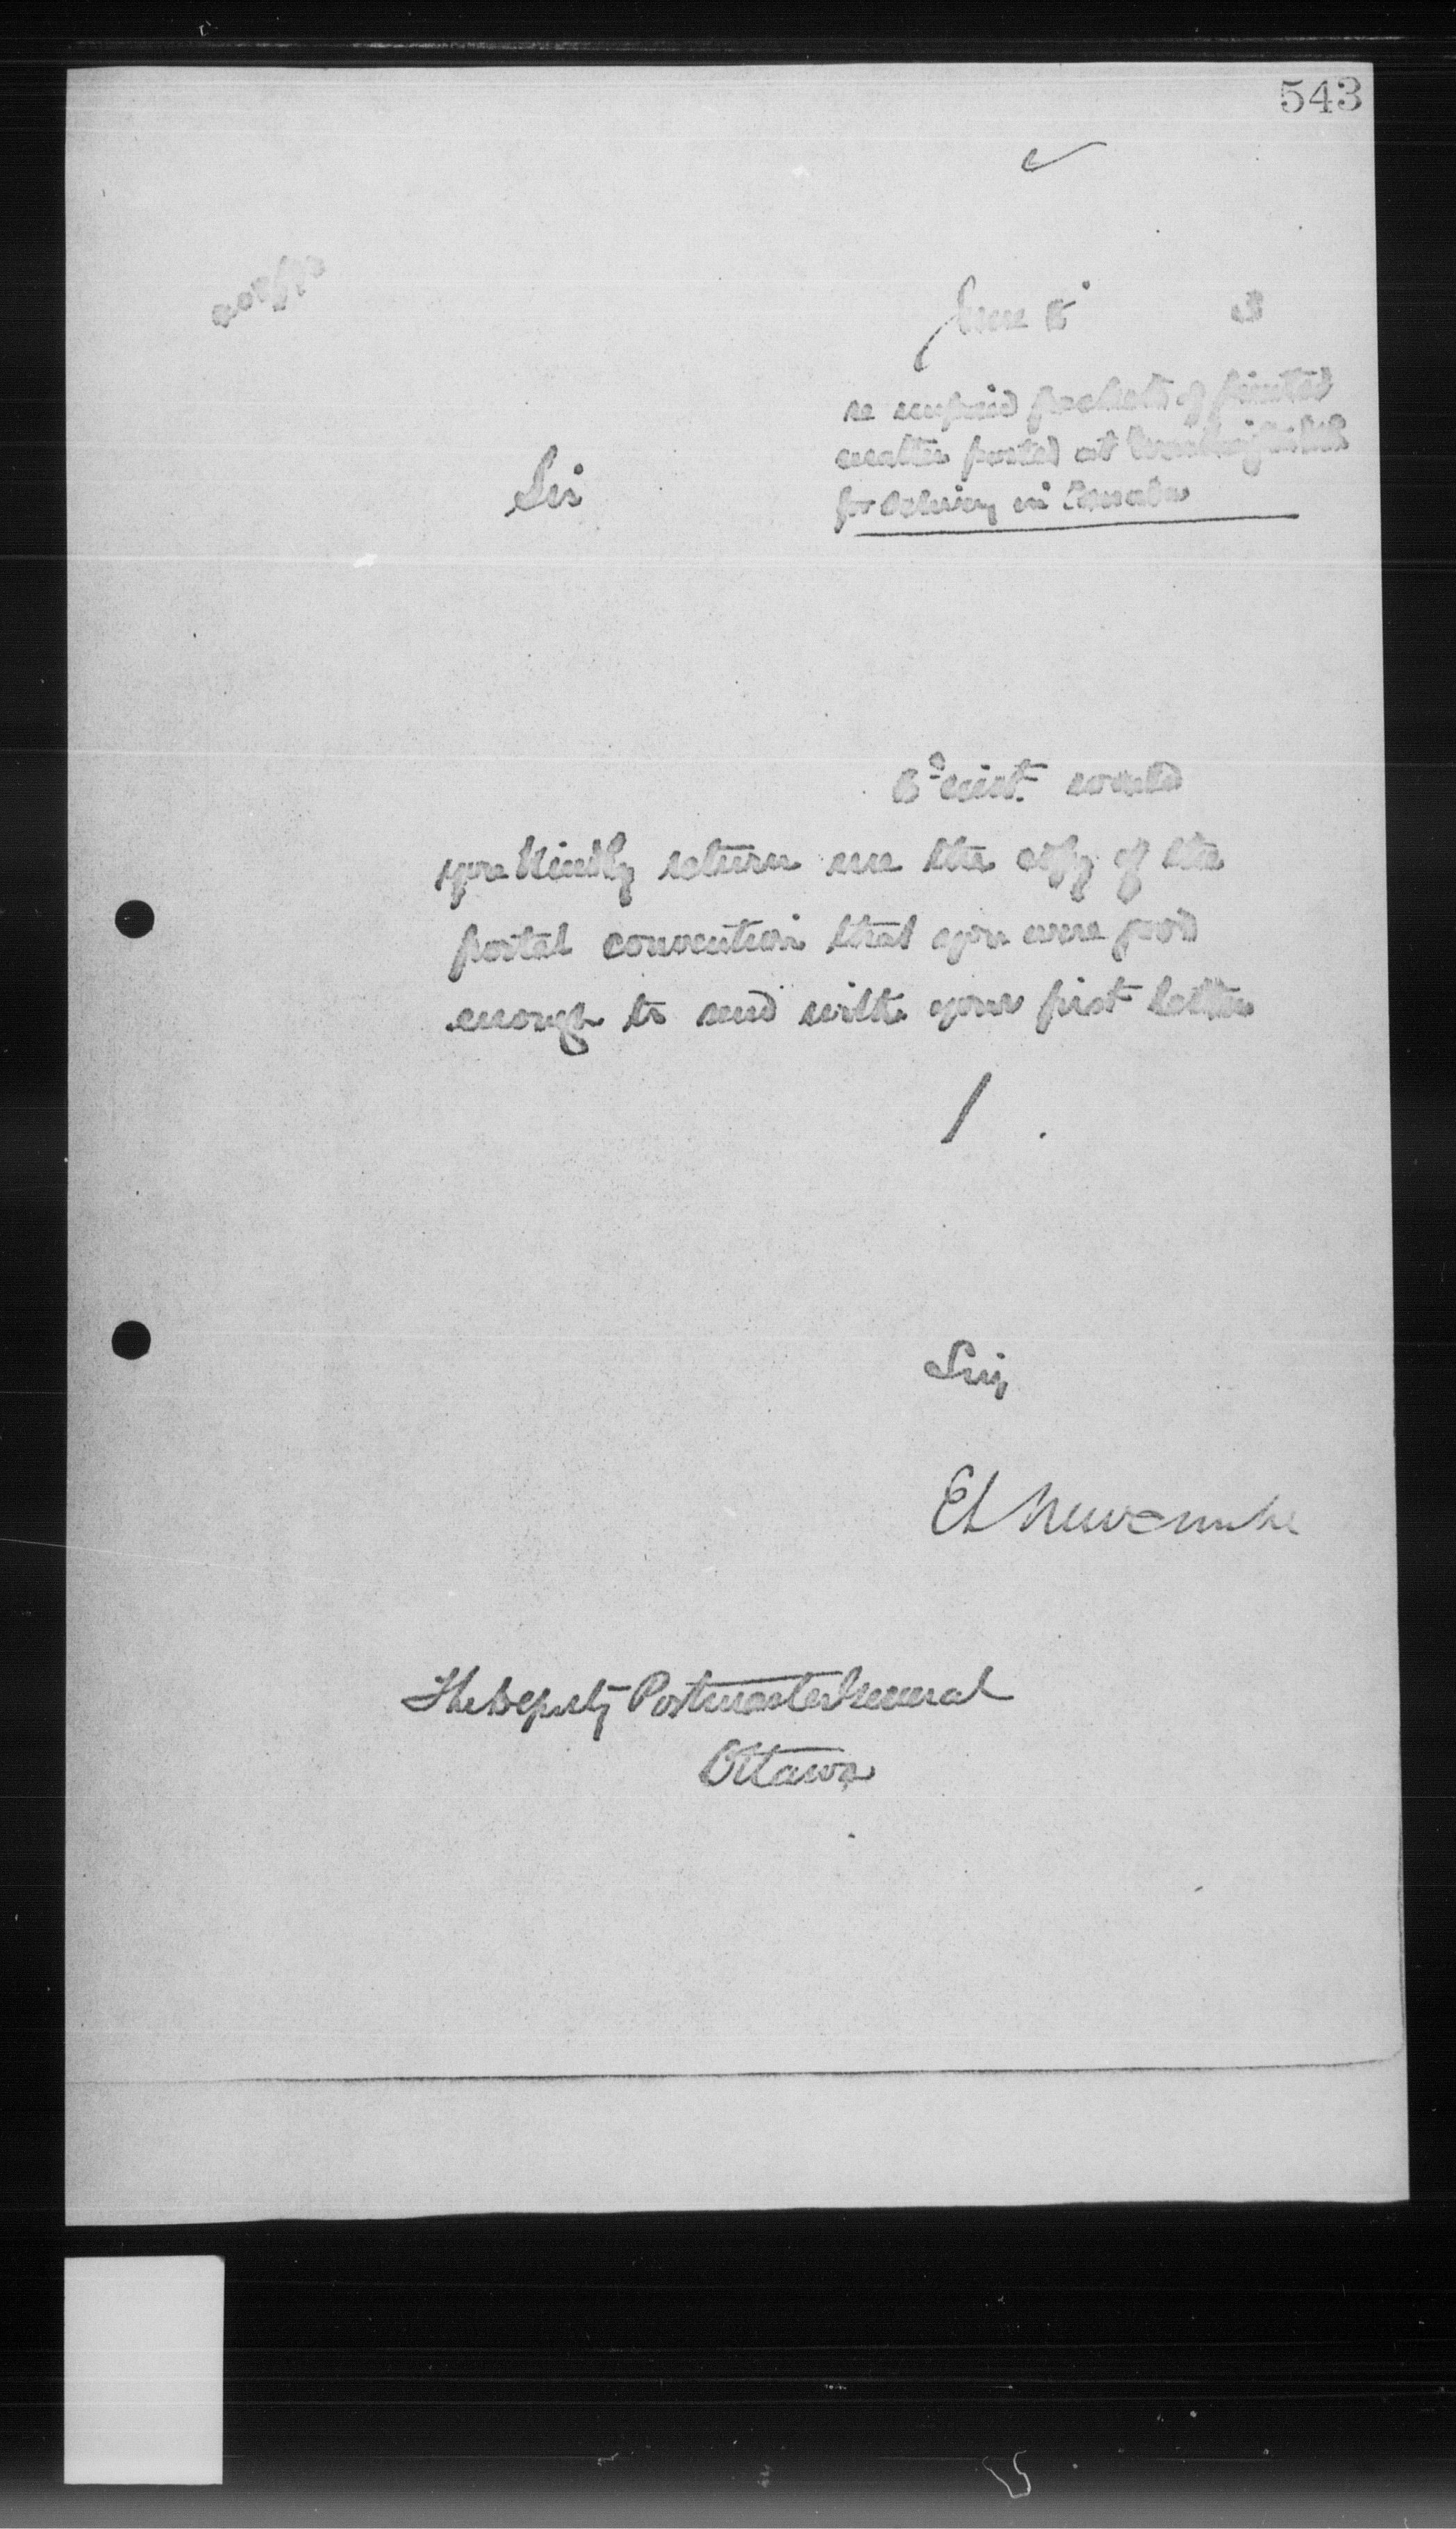 543
June 8
3
re unpaid packets of printed
matter posted at
for delivery in Canada
Sir
inst. would
you kindly return me the copy of the
postal convention that you were good
enough to send with your first letter
Sir,
E L Newcombe
The Deputy Postmaster General
Ottawa